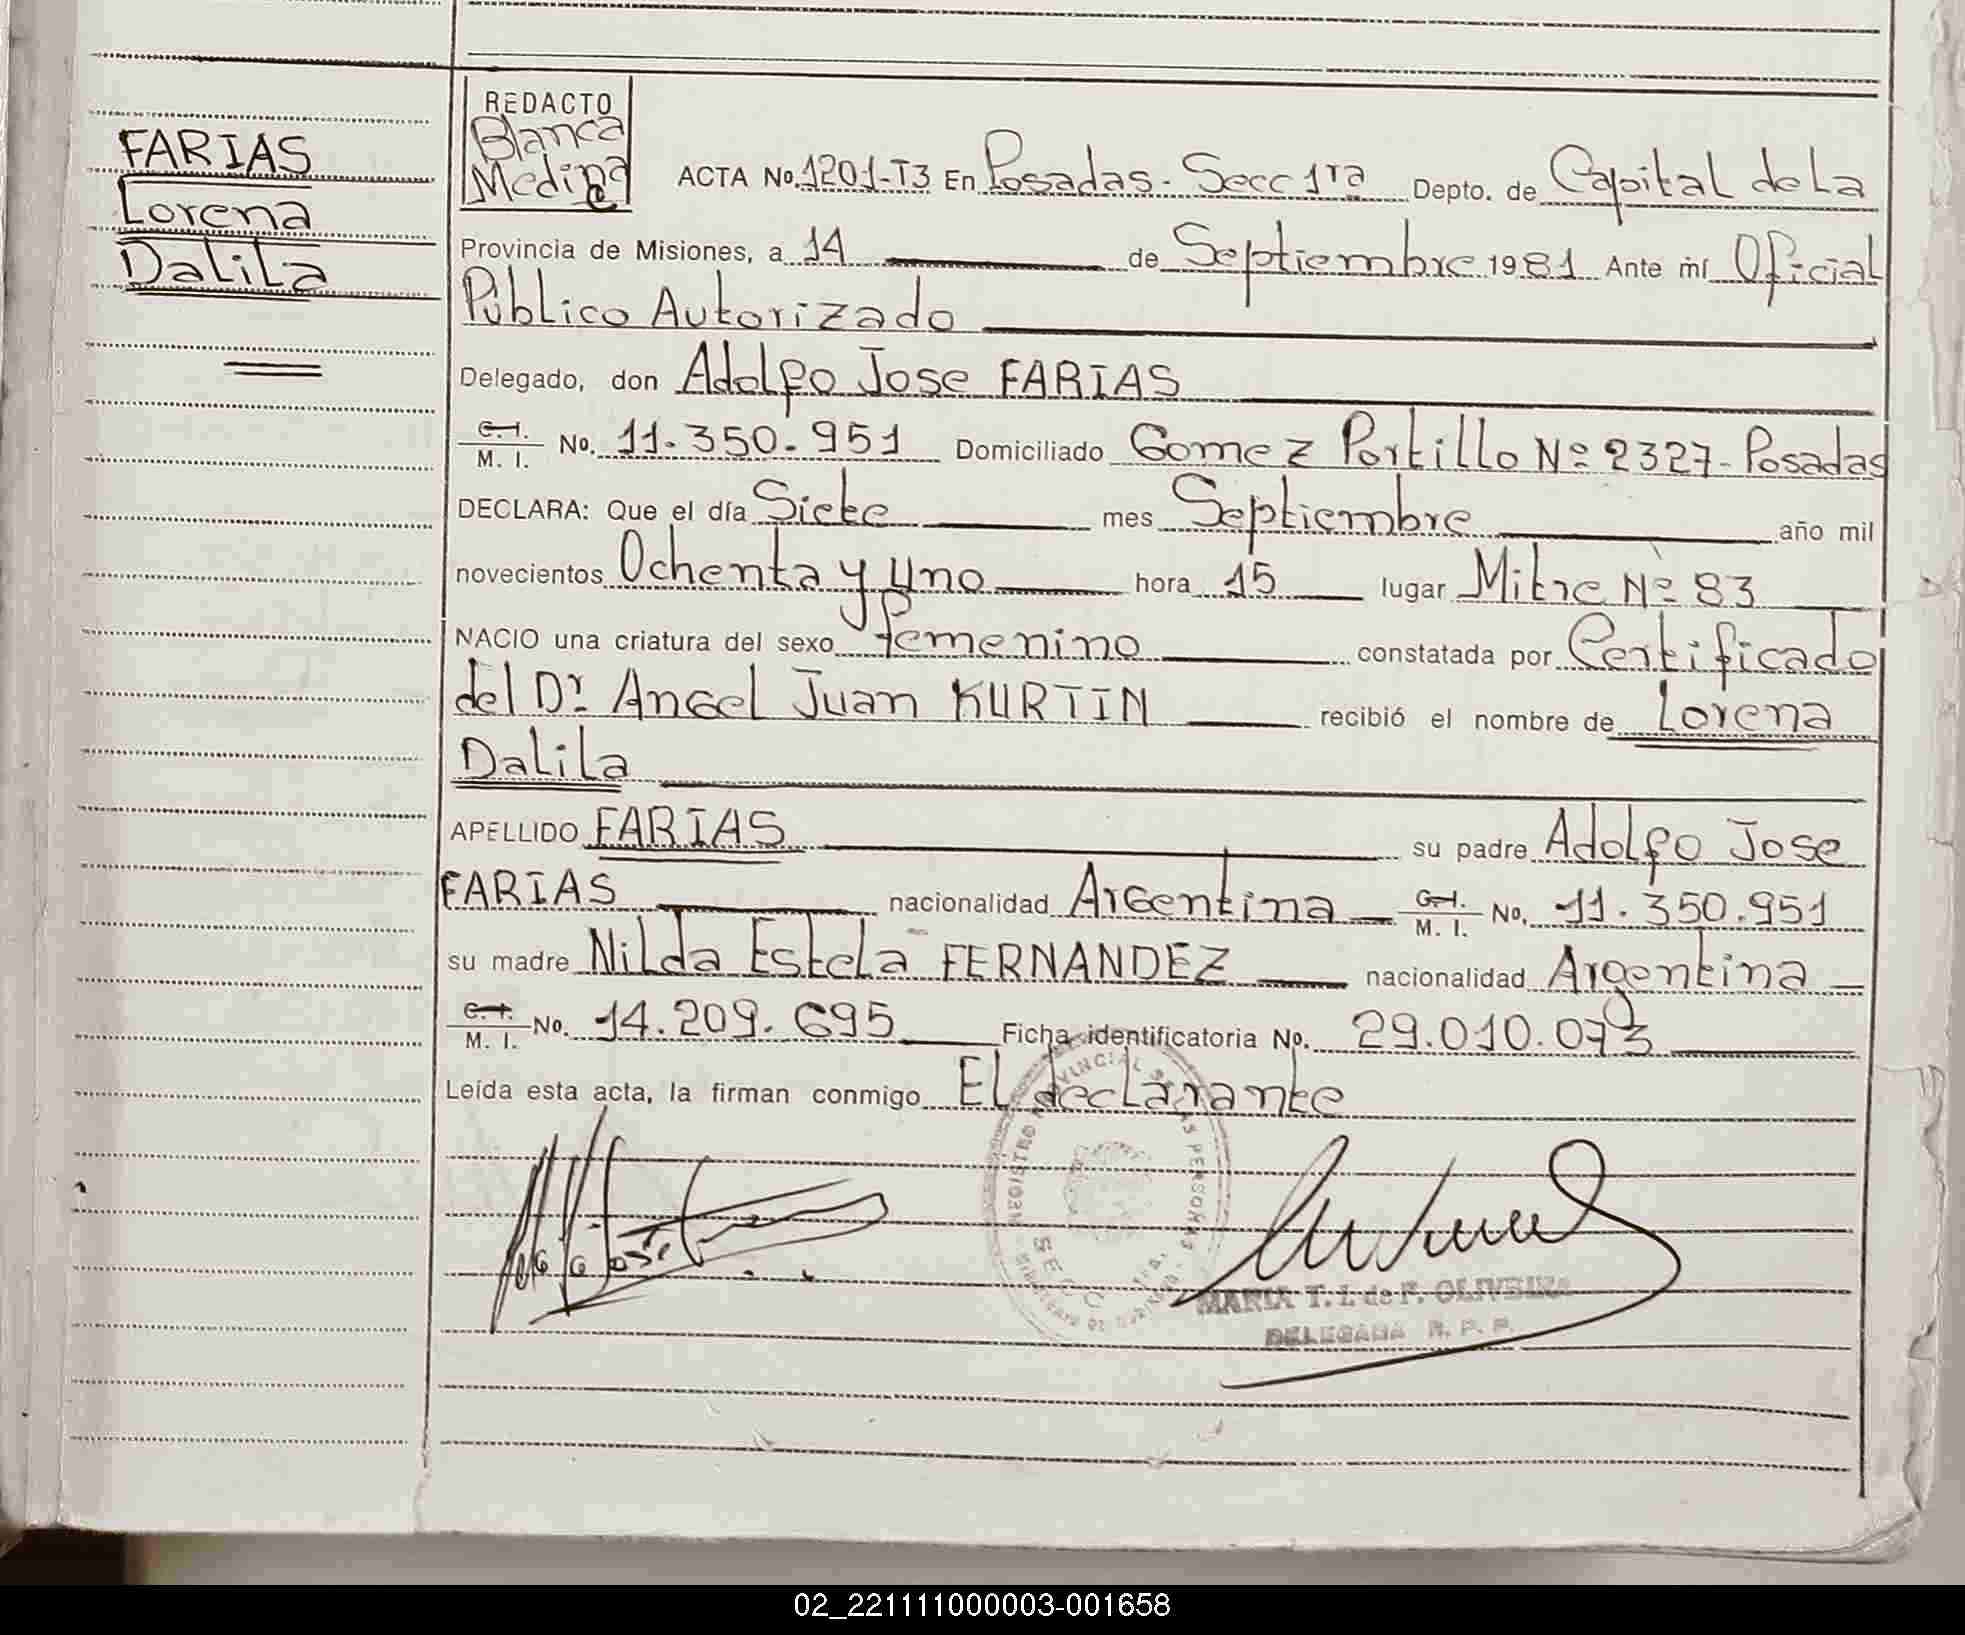 FARIAS
Lorena
Dalila
REDACTO
Blanca
Medina
ACTA No. 1201-T3 En Posadas - Secc 1ra Depto. de Capital de La
Provincia de Misiones, a 14 de Septiembre 1981 Ante mí Oficial
Público Autorizado
Delegado, don Adolfo Jose FARIAS
C. I. / M. I. No. 11.350.951 Domiciliado Gomez Portillo Nº 2327- Posadas
DECLARA: Que el día Siete mes Septiembre año mil
novecientos Ochenta y uno hora 15 lugar Mitre Nº 83
NACIO una criatura del sexo femenino constatada por Certificado
del Dr. Angel Juan KURTIN recibió el nombre de Lorena
Dalila
APELLIDO FARIAS su padre Adolfo Jose
FARIAS nacionalidad Argentina C. I. / M. I. No. 11.350.951
su madre Nilda Estela FERNANDEZ nacionalidad Argentina
C. I. / M. I. No. 14.209.695 Ficha identificatoria No. 29.010.073
Leída esta acta, la firman conmigo El declarante
REGISTRO PROVINCIAL DE LAS PERSONAS
SECC. 1ra.
MARIA T. I. de F. OLIVEIRA
DELEGADA R. P. P.
02_221111000003-001658